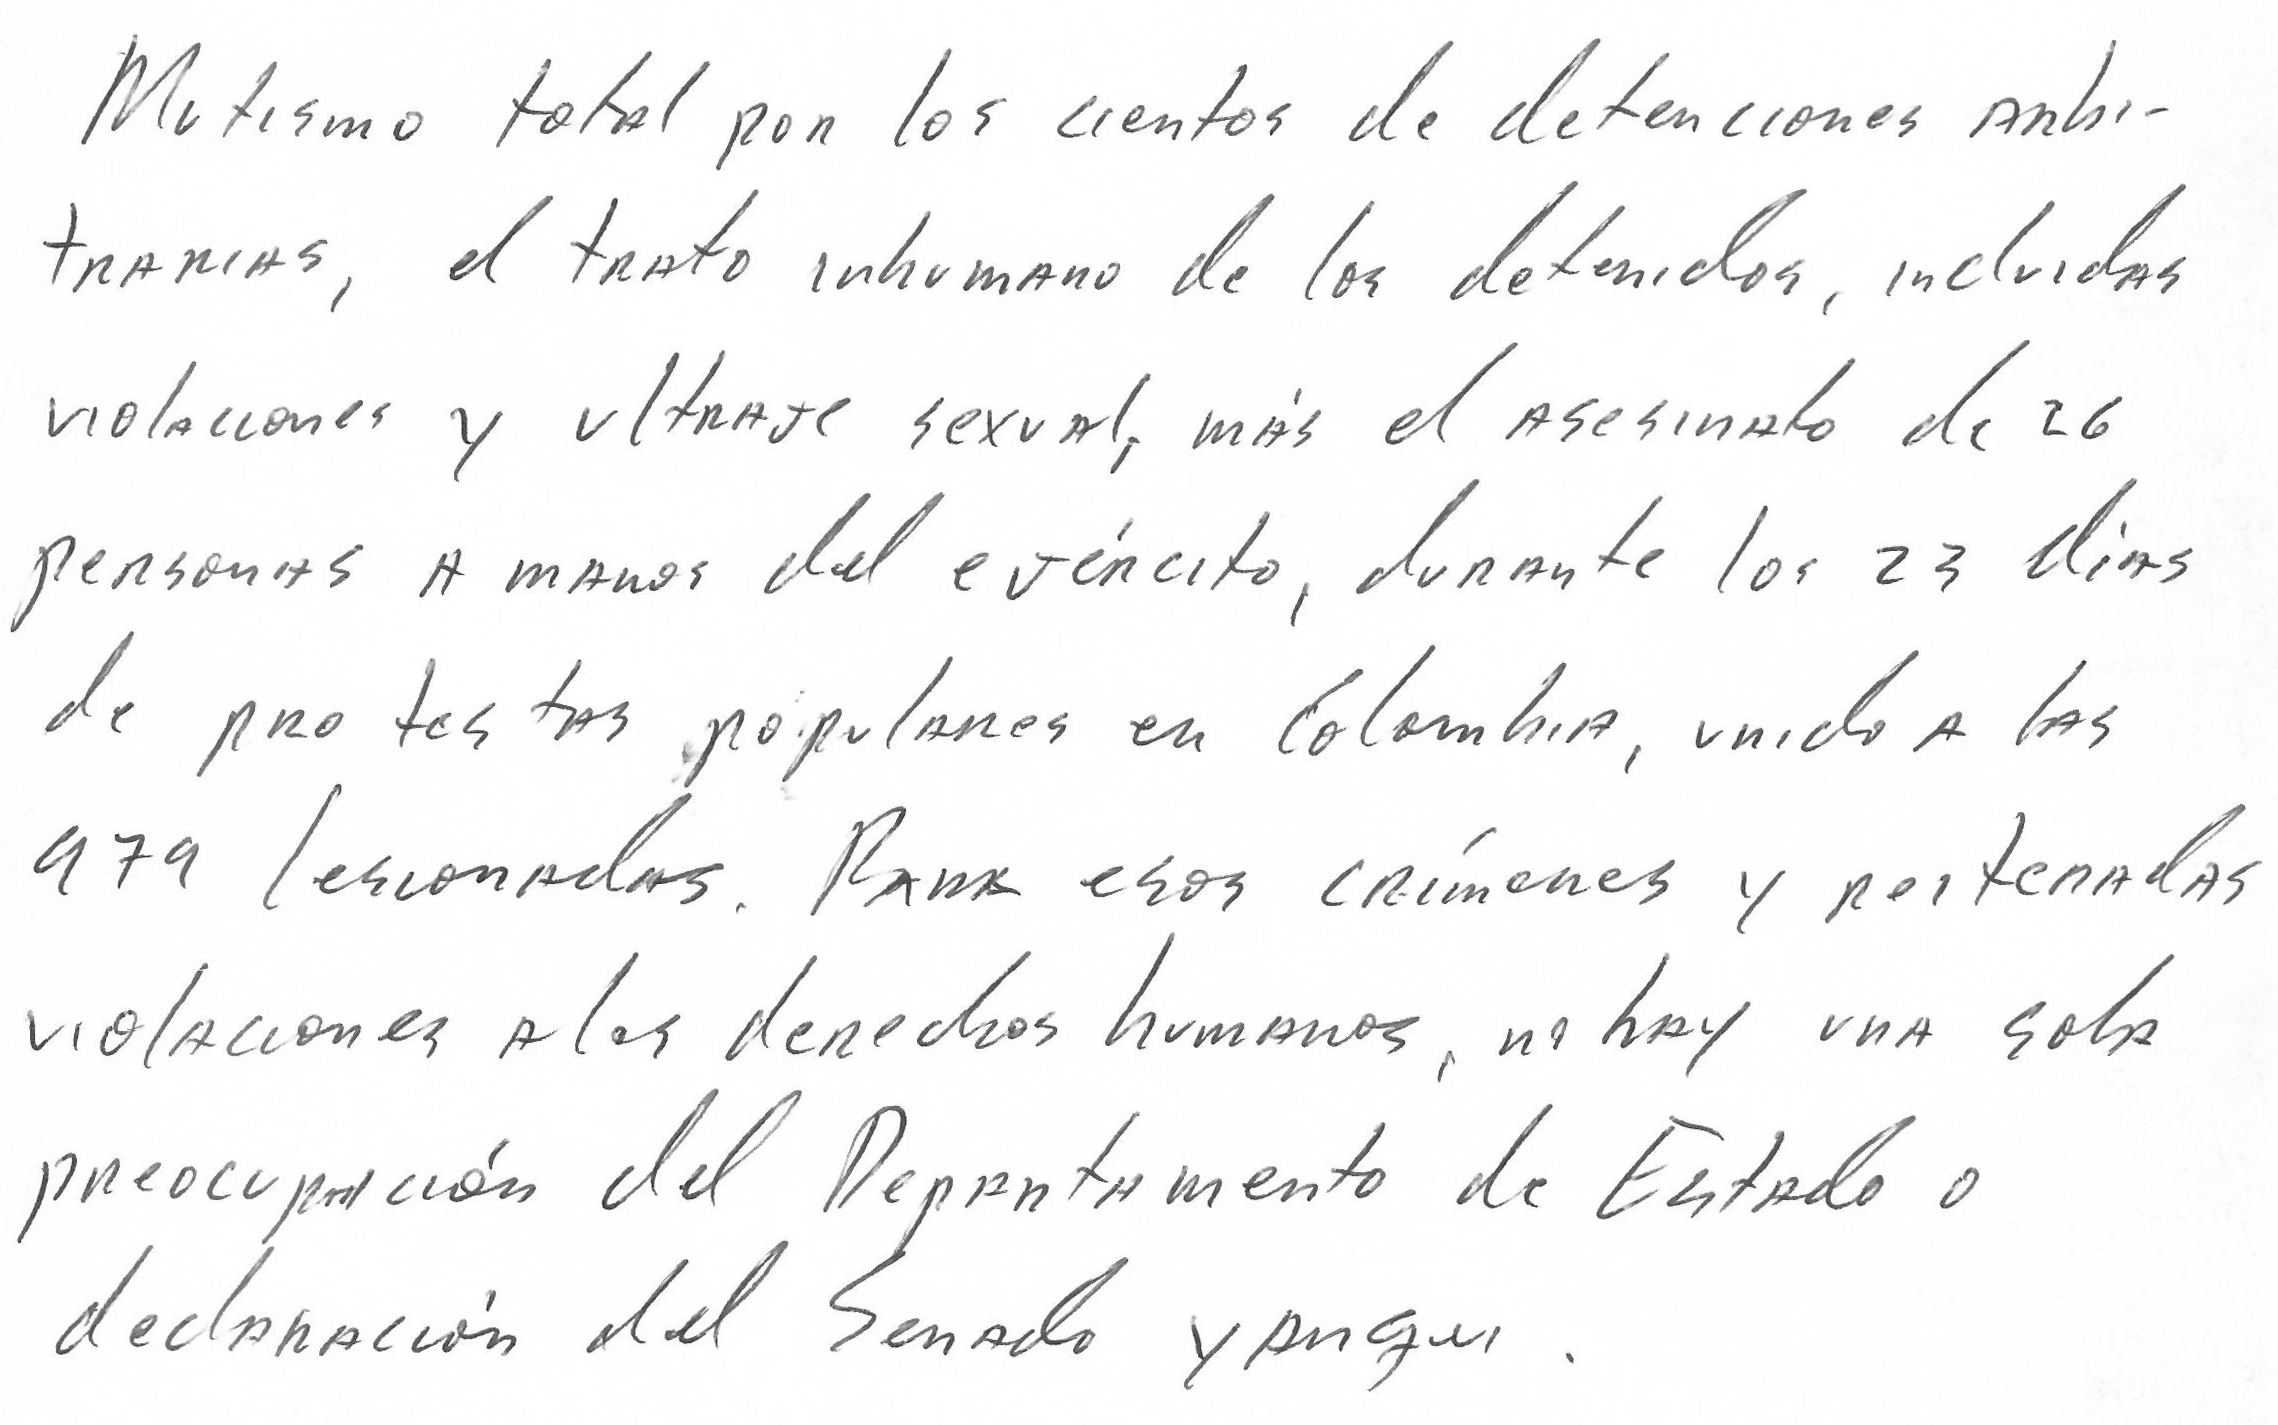 Mutismo total por los cientos de detenciones arbi-
trarias, el trato inhumano de los detenidos, incluidas
violaciones y ultraje sexual, más el asesinato de 26
personas a manos del ejército, durante los 23 días
de protestas populares en Colombia, unido a las
979 lesionadas. Para esos crímenes y reiteradas
violaciones a los derechos humanos, no hay una sola
preocupación del Departamento de Estado o
declaración del Senado yanqui.